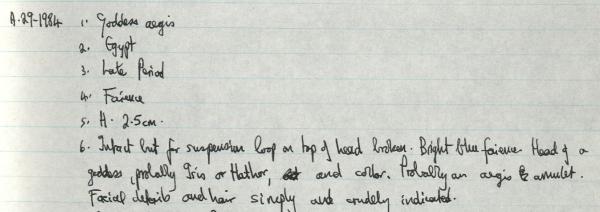 A.29-1984 1. Goddess aegis
2. Egypt
3. Late Period
4. Faience
5. H. 2.5cm.
6. Intact but for suspension loop on top of head broken. Bright blue faience. Head of a
goddess, probably Isis or Hathor, and collar. Probably an aegis amulet.
Facial details and hair simply and crudely indicated.